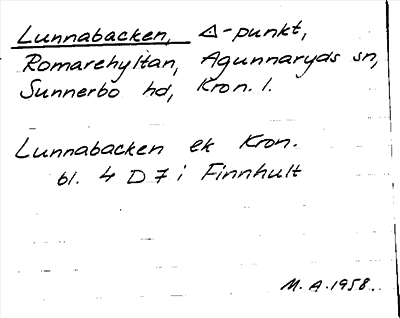 Lunnabacken, Δ-punkt,
Romarehyltan, Agunnaryds sn,
Sunnerbo hd, Kron. l.
Lunnabacken ek Kron.
bl. 4 D 7 i Finnhult
M.A. 1958.